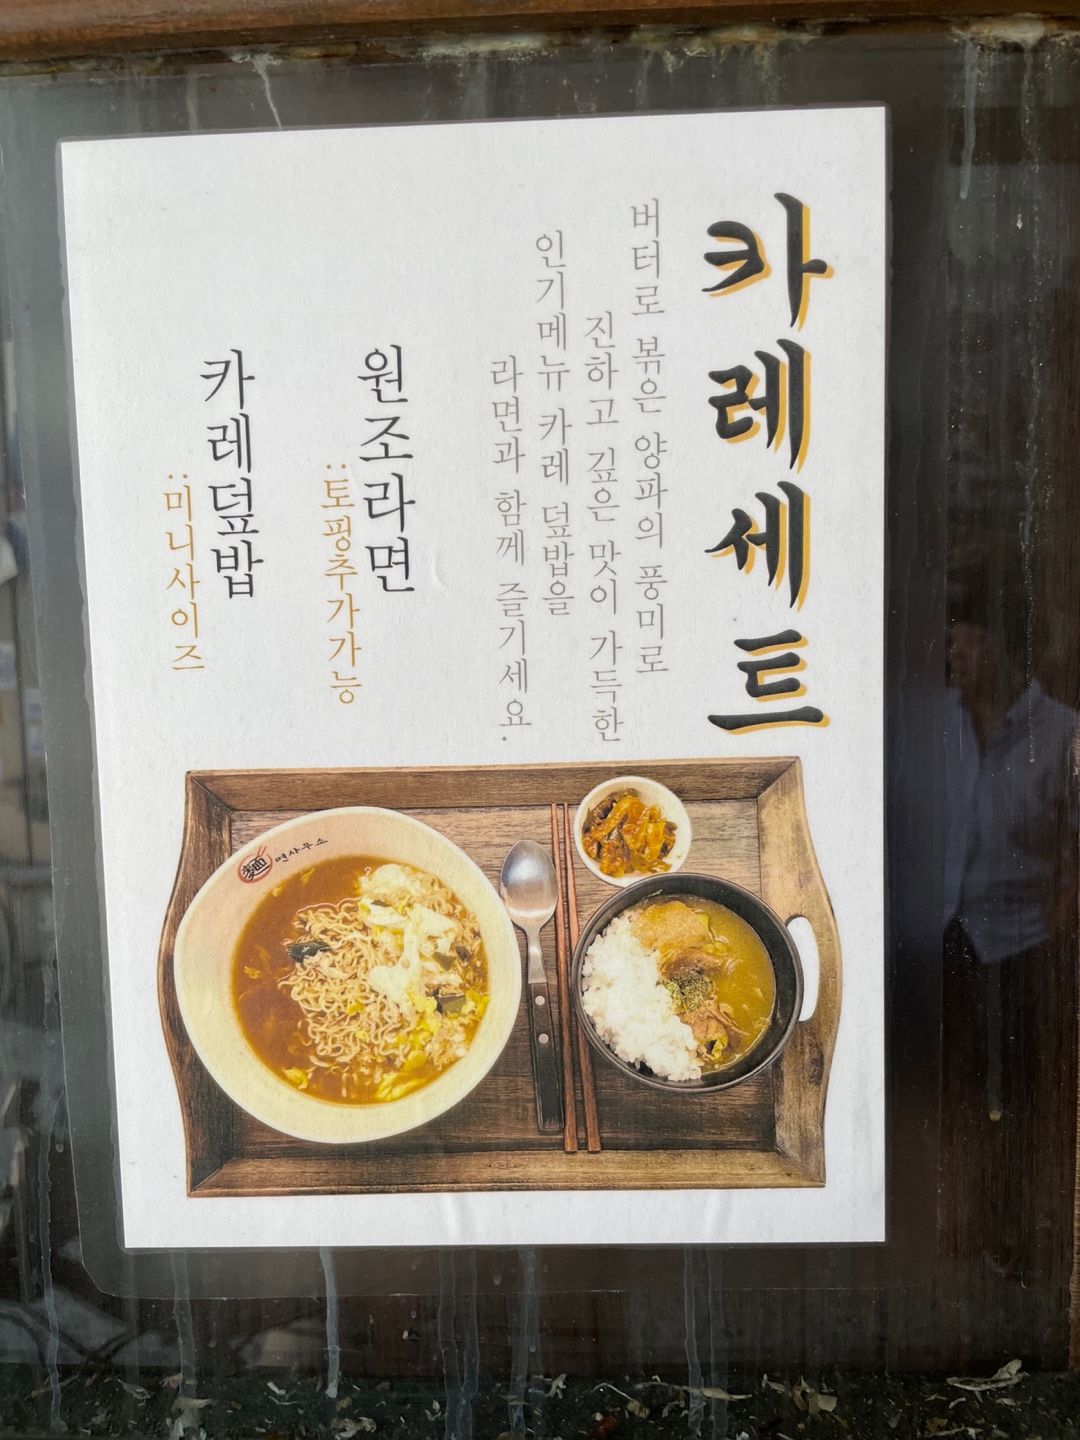 카레세트
버터로 볶은 양파의 풍미로
진하고 깊은 맛이 가득한
인기메뉴 카레 덮밥을
라면과 함께 즐기세요.
원조라면
:토핑추가가능
카레덮밥
:미니사이즈
麵 면사무소